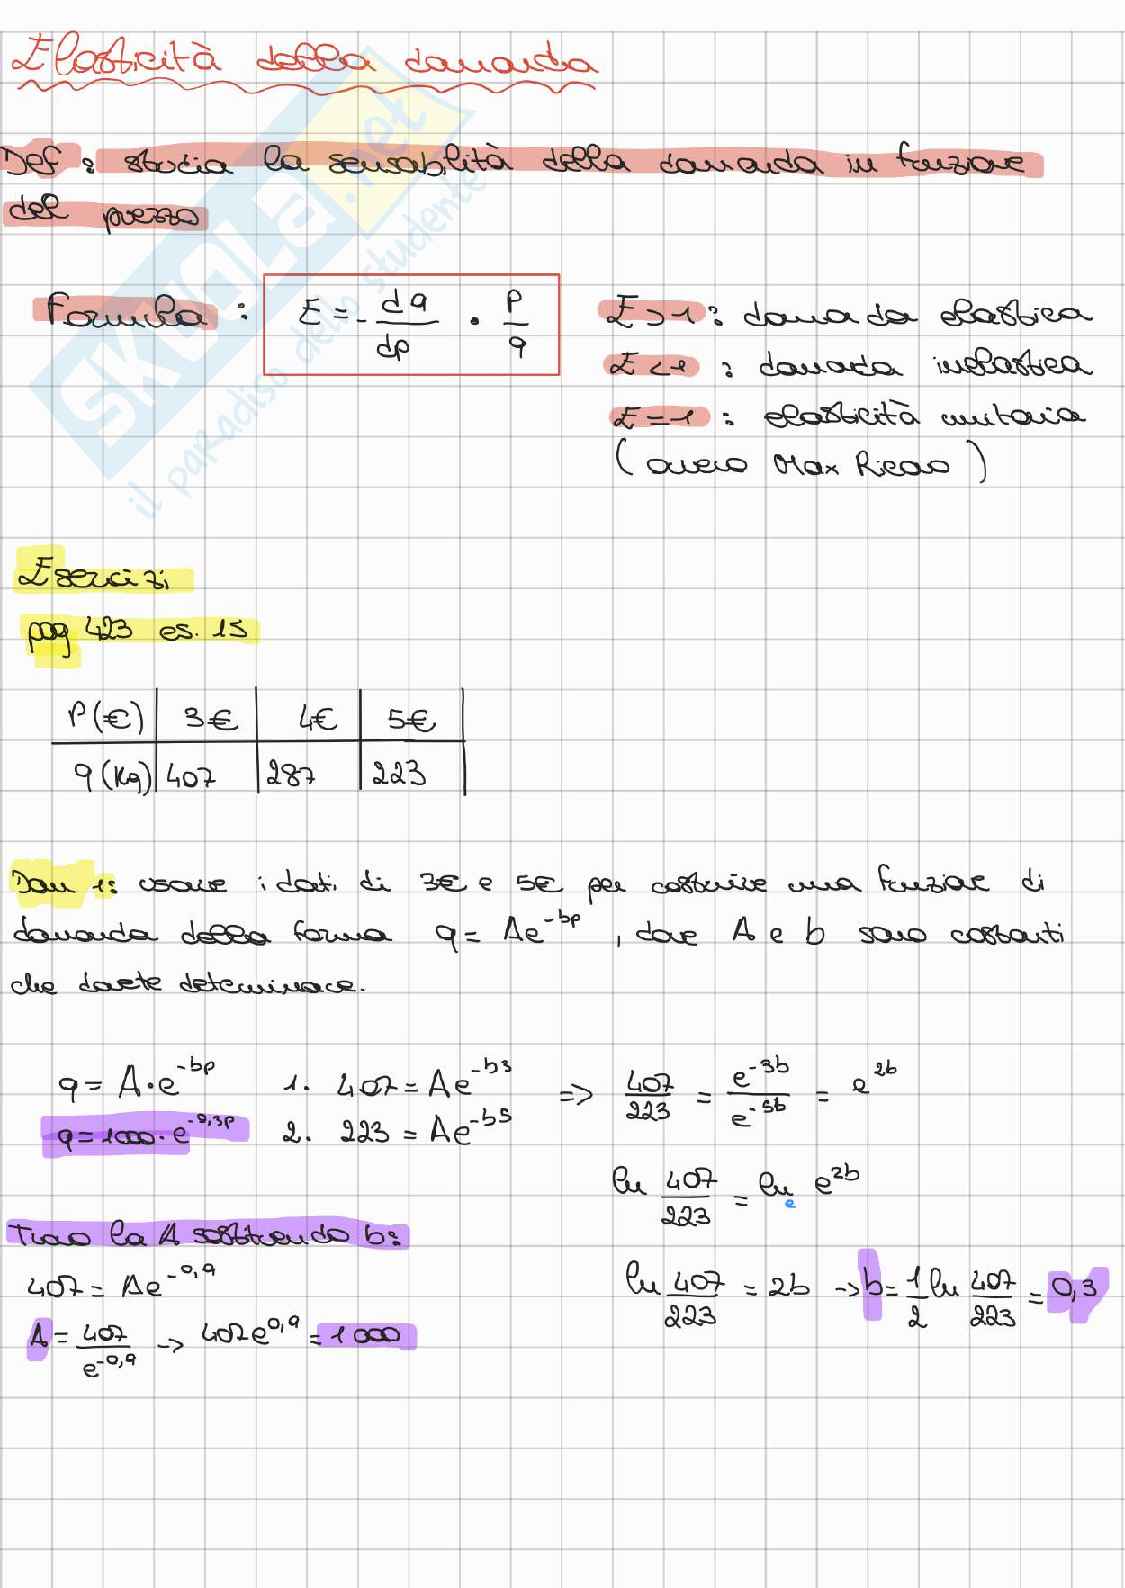 Elasticità della domanda
Def: studia la sensabilità della domanda in funzione
del prezzo
Formula: E = - dq/dp · p/q
E > 1: domanda elastica
E < 1: domanda inelastica
E = 1: elasticità unitaria
(ovvero Max Ricavo)
SKUOLA.net
il paradiso dello studente
Esercizi
pag 423 es. 15
P(€) 3€ 4€ 5€
q(Kg) 407 287 223
Dom 1: usare i dati di 3€ e 5€ per costruire una funzione di
domanda della forma q = Ae^-bp, dove A e b sono costanti
che dovete determinare.
q = A·e^-bp 1. 407 = Ae^-b3 => 407/223 = e^-3b/e^-5b = e^2b
q = 1000·e^-0,3p 2. 223 = Ae^-b5
ln 407/223 = ln e e^2b
Trovo la A sostituendo b:
407 = Ae^-0,9
ln 407/223 = 2b -> b = 1/2 ln 407/223 = 0,3
A = 407/e^-0,9 -> 407e^0,9 = 1000